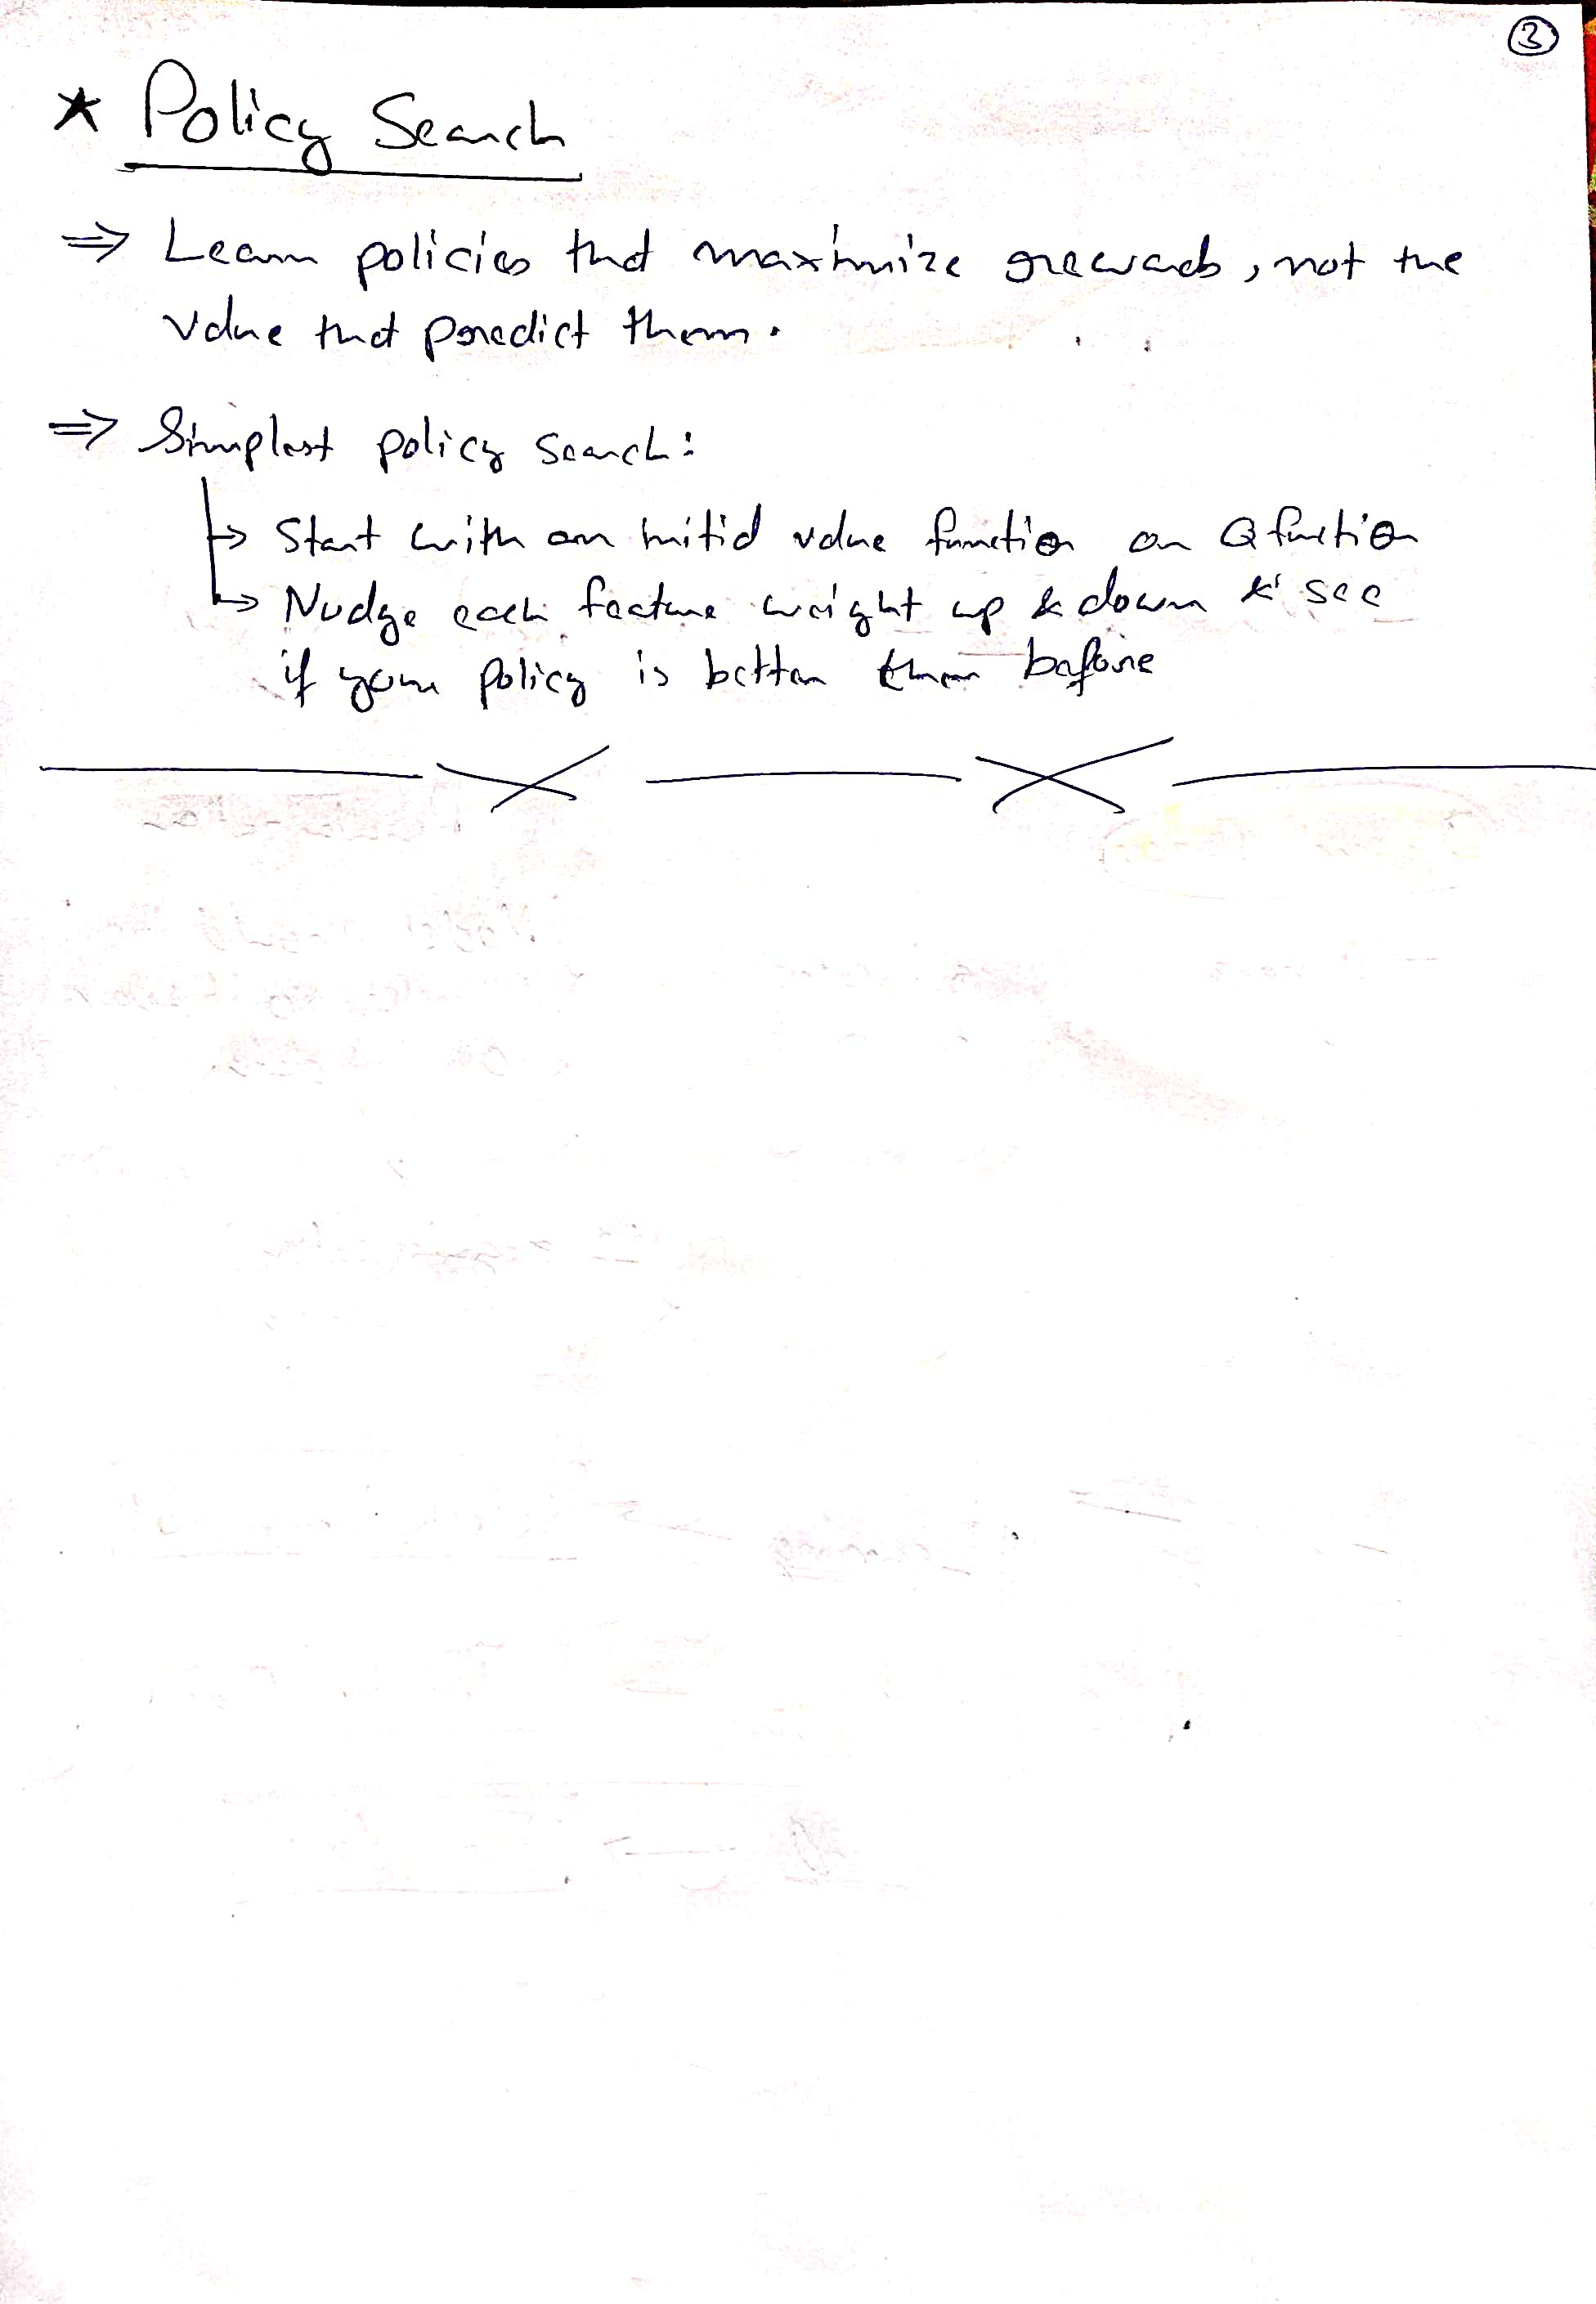 3
* Policy Search
⇒ Learn policies that maximize rewards, not the
value that predict them.
⇒ Simplest policy search:
↳ Start with an initial value function or Q function
↳ Nudge each feature weight up & down & see
if your policy is better than before